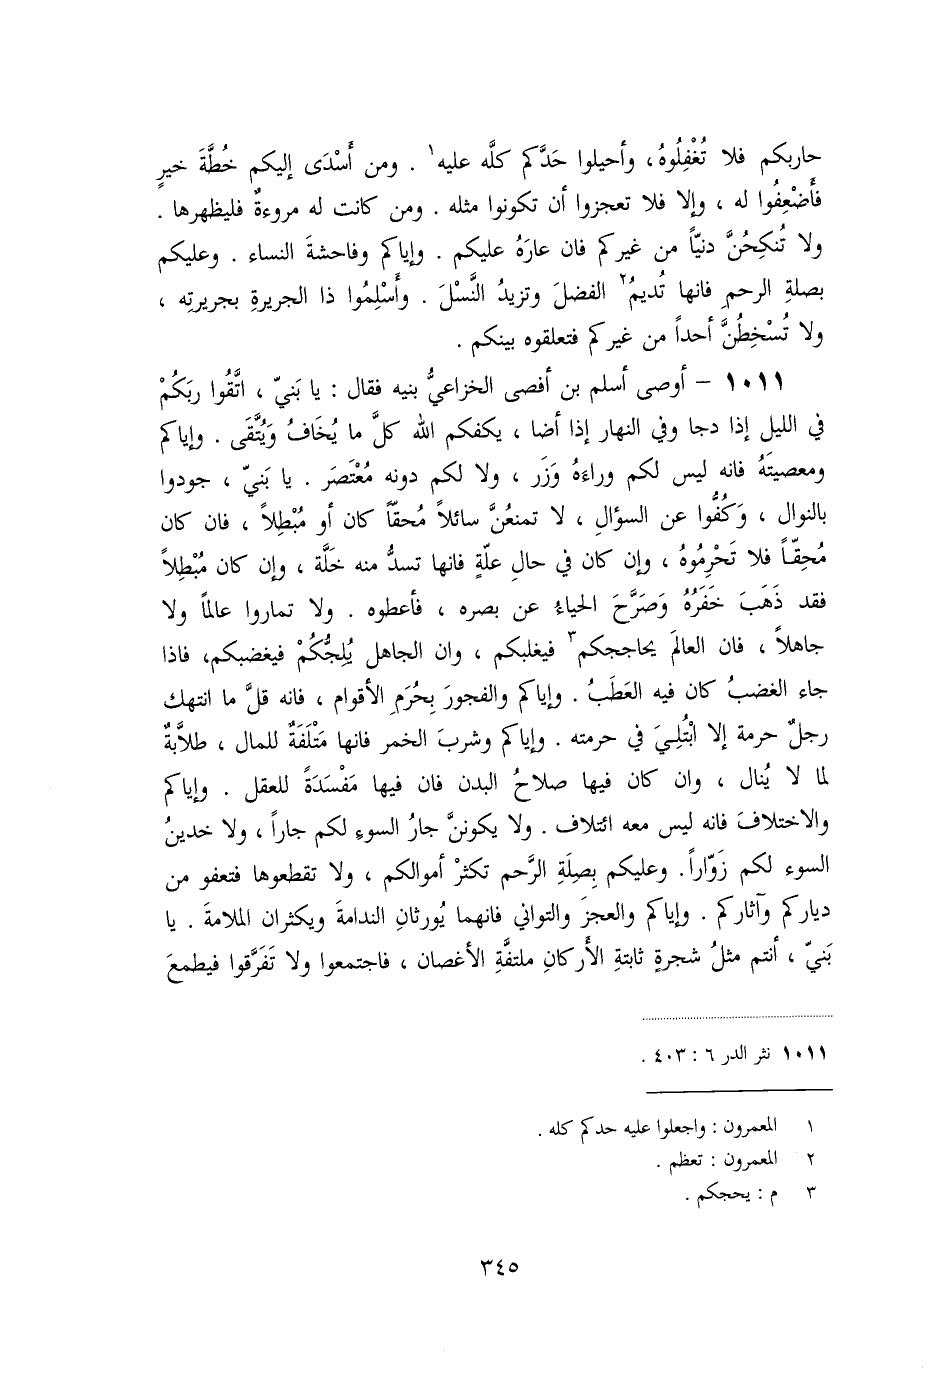 حاربكم فلا تُغْفِلُوهُ، وأحيلوا حَدَّكم كلَّه عليه١ . ومن أَسْدَى إليكم خُطَّةَ خيرٍ
فَأَضْعِفُوا له ، وإلا فلا تعجزوا أن تكونوا مثله . ومن كانت له مروءةٌ فليظهرها .
ولا تُنكِحُنَّ دنيّاً من غيركم فان عارَهُ عليكم . وإياكم وفاحشةَ النساء . وعليكم
بصلةِ الرحمِ فانها تُديمُ٢ الفضلَ وتزيدُ النَّسْلَ . وأَسْلِمُوا ذا الجريرةِ بجريرتِه ،
ولا تُسْخِطُنَّ أحداً من غيركم فتعلقوه بينكم .
١٠١١ – أوصى أسلم بن أفصى الخزاعيُّ بنيه فقال : يا بَنيّ ، اتَّقُوا ربَكُمْ
في الليل إذا دجا وفي النهار إذا أضا ، يكفكم الله كلَّ ما يُخَافُ وَيُتَّقَى . وإياكم
ومعصيتَهُ فانه ليس لكم وراءَهُ وَزَر ، ولا لكم دونه مُعْتَصَر . يا بَنيّ ، جودوا
بالنوال ، وَكُفُّوا عن السؤالِ ، لا تمنعُنَّ سائلاً مُحقّاً كان أو مُبْطِلاً ، فان كان
مُحِقّاً فلا تَحْرِمُوهُ ، وإن كان في حالِ علّةٍ فانها تسدُّ منه خَلَّة ، وإن كان مُبْطِلاً
فقد ذَهَبَ خَفَرُهُ وَصَرَّحَ الحياءُ عن بصره ، فأعطوه . ولا تماروا عالماً ولا
جاهلاً ، فان العالمَ يحاججكم٣ فيغلبكم ، وان الجاهل يُلِجُّكُمْ فيغضبكم، فاذا
جاء الغضبُ كان فيه العَطَبُ . وإياكم والفجورَ بِحُرَمِ الأقوام ، فانه قلَّ ما انتهك
رجلٌ حرمة إلا ابْتُلِيَ في حرمته . وإياكم وشربَ الخمر فانها مَتْلَفَةٌ للمال ، طلاَّبةٌ
لما لا يُنال ، وان كان فيها صلاحُ البدن فان فيها مَفْسَدَةً للعقل . وإياكم
والاختلافَ فانه ليس معه ائتلاف . ولا يكوننَّ جارُ السوءِ لكم جاراً ، ولا خدينُ
السوء لكم زَوّاراً. وعليكم بِصِلَةِ الرَّحم تكثرْ أموالكم ، ولا تقطعوها فتعفو من
دياركم وآثاركم . وإياكم والعجزَ والتواني فانهما يُورثانِ الندامةَ ويكثران الملامةَ . يا
بَنيّ ، أنتم مثلُ شجرةٍ ثابتةِ الأَركانِ ملتفَّةِ الأغصان ، فاجتمعوا ولا تَفَرَّقوا فيطمعَ
١٠١١ نثر الدر ٦ : ٤٠٣ .
١ المعمرون : واجعلوا عليه حدكم كله .
٢ المعمرون : تعظم .
٣ م : يحججكم .
٣٤٥